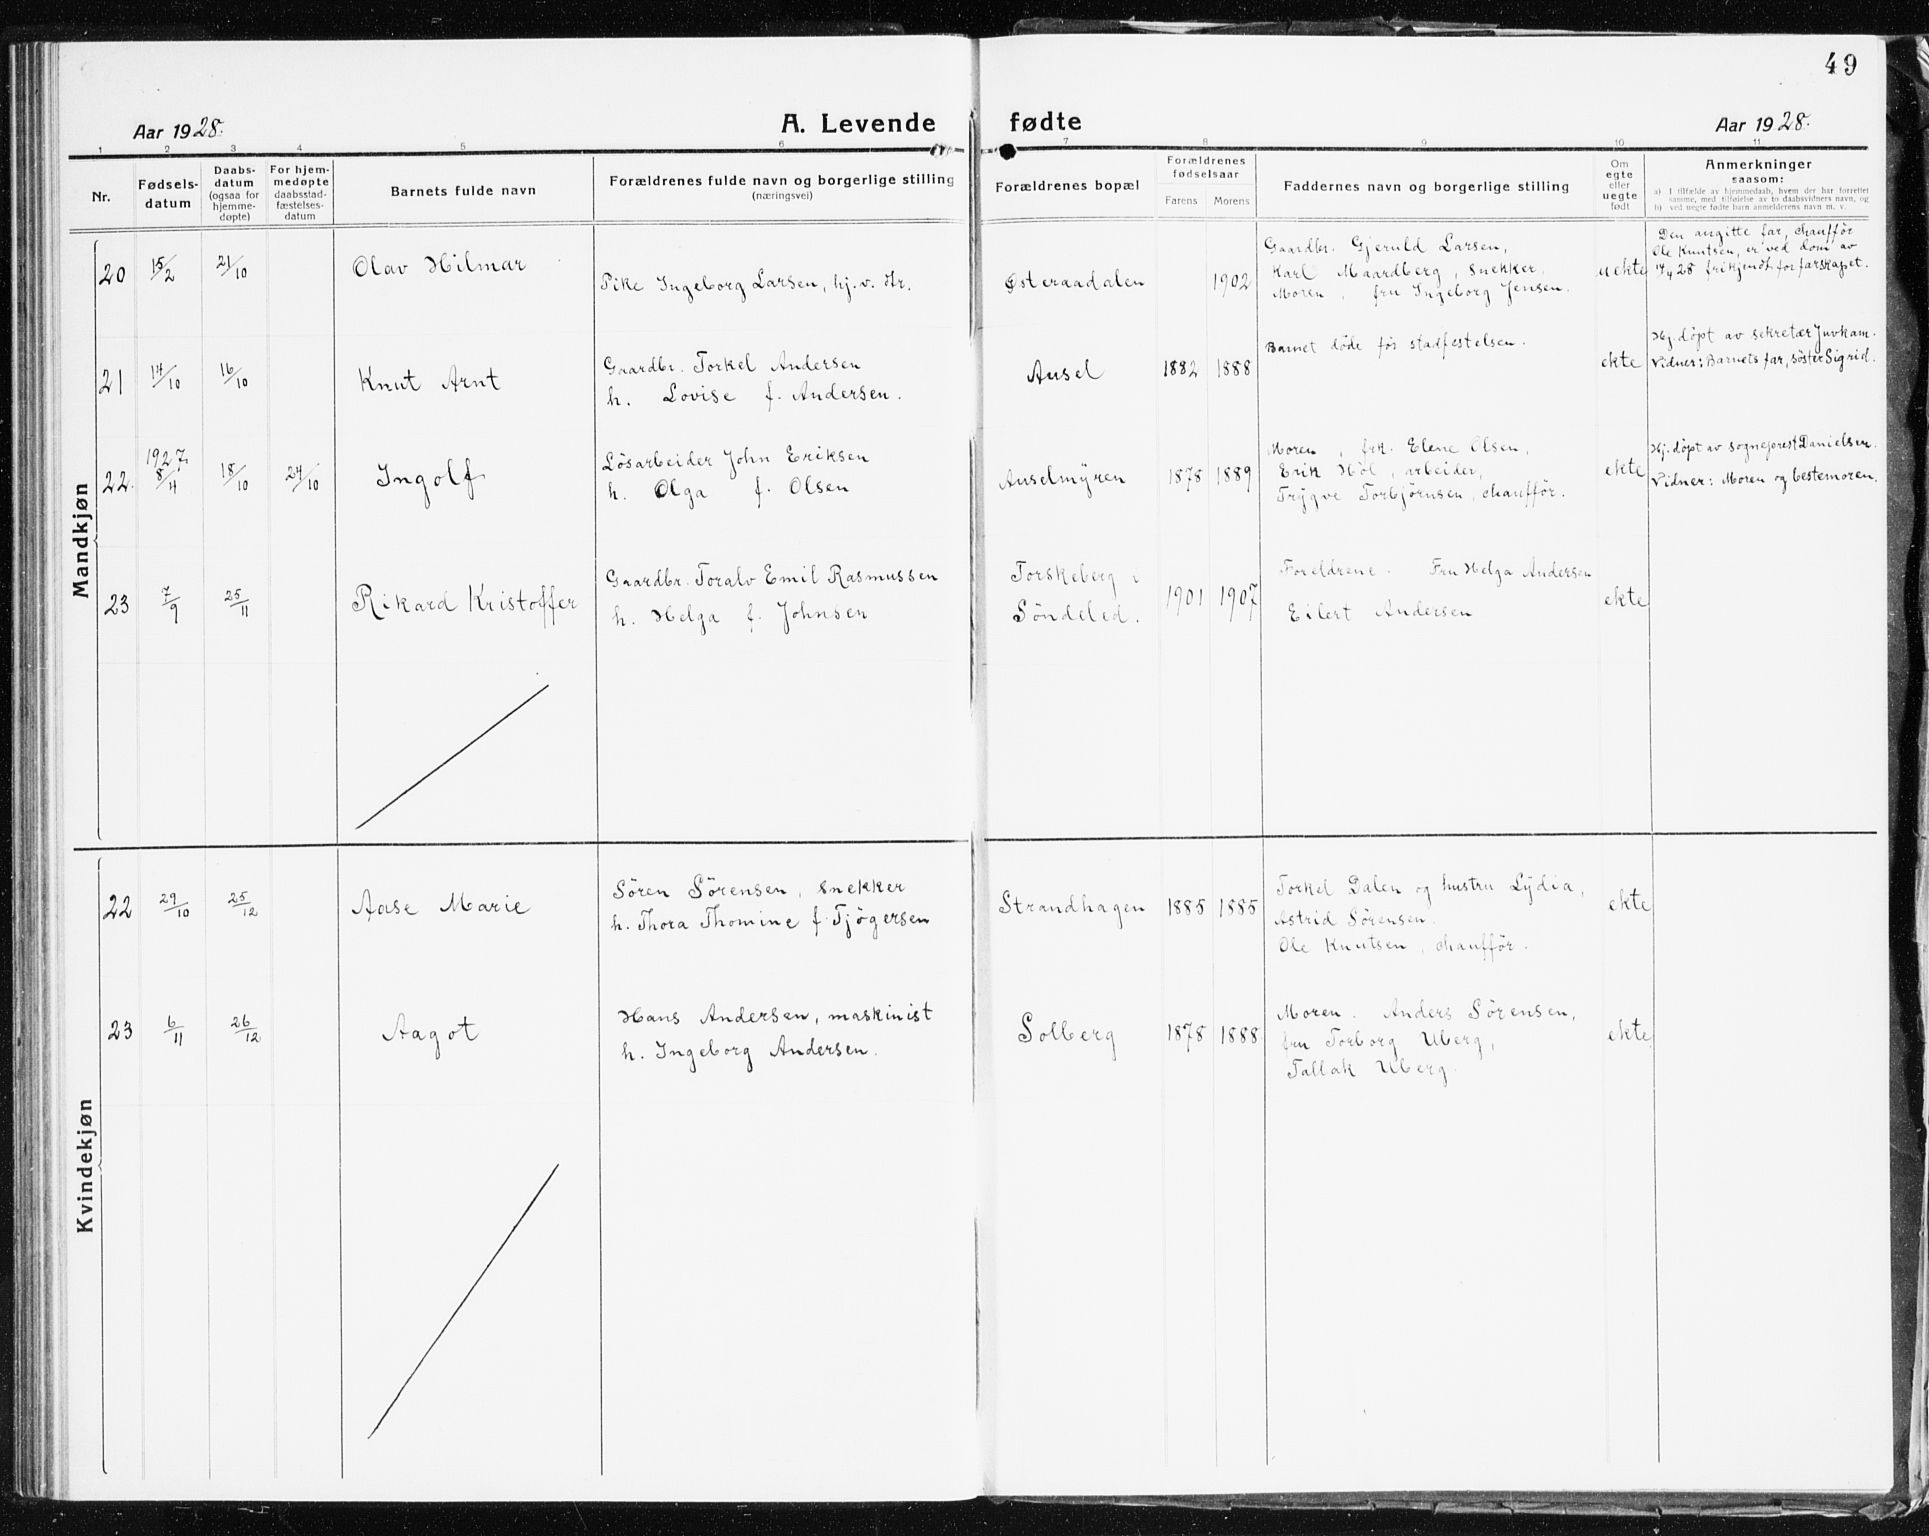 49
Aar 1928.
A. Levende fødte
Aar 1928.
1 2 3 4 5 6 7 8 9 10 11
Nr.
Fødsels-
datum
Daabs-
datum
(ogsaa for
hjemme-
døpte)
For hjem-
medøpte
daabsstad-
fæstelses-
datum
Barnets fulde navn
Forældrenes fulde navn og borgerlige stilling
(næringsvei)
Forældrenes bopæl
Forældrenes
fødselsaar
Farens Morens
Faddernes navn og borgerlige stilling
Om
egte
eller
uegte
født
Anmerkninger
saasom:
a) I tilfælde av hjemmedaab, hvem der har forrettet
samme, med tilføielse av to daabsvidners navn, og
b) ved uegte fødte barn anmelderens navn m. v.
Mandkjøn
20 15/2 21/10 Olav Hilmar
Pike Ingeborg Larsen, hj. v. str.
Østeraadalen 1902
Gaardbr. Gjeruld Larsen,
Karl Maardberg, snekker.
Moren, fru Ingeborg Jensen.
uekte
Den angitte far, chauffør
Ole Knutsen, er ved dom av
14/4 28 frikjendt for farskapet.
21 14/10 16/10 Knut Arnt
Gaardbr. Torkel Andersen
h. Lovise f. Andersen.
Ausel 1882 1888
Barnet døde før stadfestelsen.
ekte
Hj. døpt av sekretær Juvkam.
Vidner: Barnets far, søster Sigrid.
22. 1927 8/4 18/10 24/10 Ingolf
Løsarbeider John Eriksen
h. Olga f. Olsen
Auselmyren 1878 1889
Moren, frk. Elene Olsen,
Erik Høl, arbeider,
Trygve Torbjørnsen, chauffør.
ekte
Hj. døpt av sogneprest Danielsen.
Vidner: Moren og bestemoren.
23 7/9 25/11 Rikard Kristoffer
Gaardbr. Toralv Emil Rasmussen
h. Helga f. Johnsen
Torskeberg i
Søndeled. 1901 1907
Foreldrene. Fru Helga Andersen
Eilert Andersen
ekte
Kvindekjøn
22 29/10 25/12 Aase Marie
Søren Sørensen, snekker
h. Thora Thomine f. Tjøgersen
Strandhagen 1885 1885
Torkel Dalen og hustru Lydia,
Astrid Sørensen.
Ole Knutsen, chauffør.
ekte
23 6/11 26/12 Aagot
Hans Andersen, maskinist
h. Ingeborg Andersen.
Solberg 1878 1888
Moren. Anders Sørensen,
fru Torborg Uberg,
Tallak Uberg.
ekte.